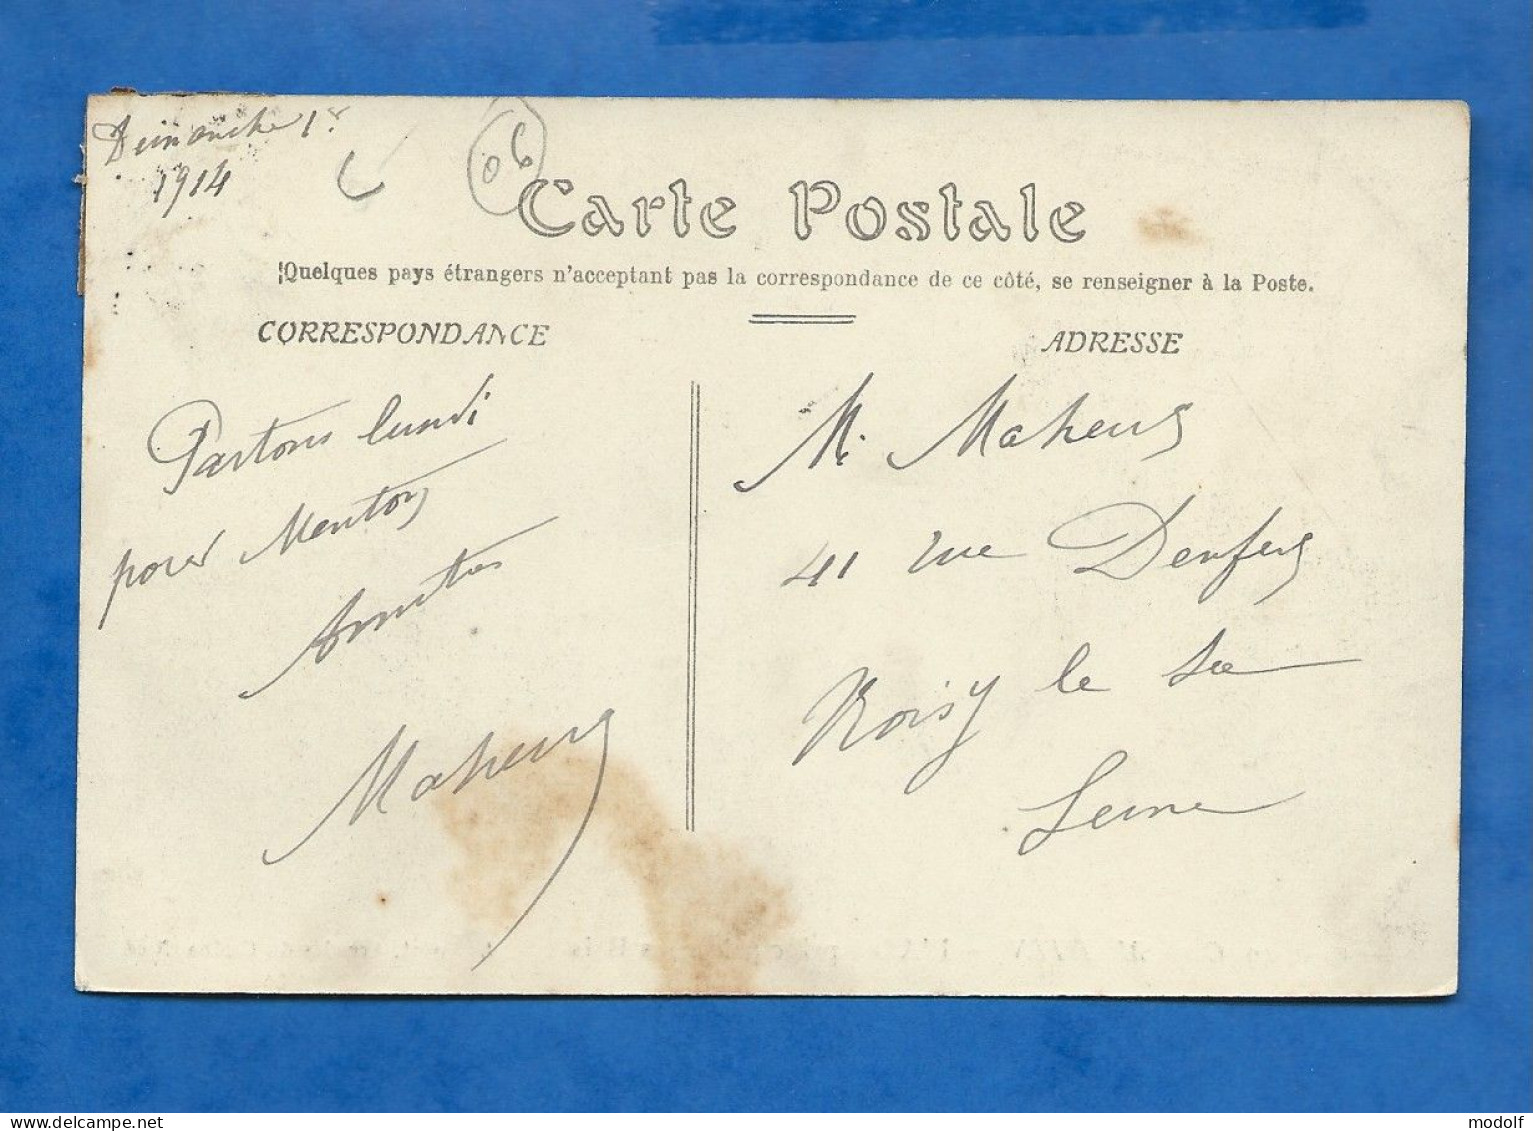 Dimanche 1er
1914
06
Carte Postale
Quelques pays étrangers n'acceptant pas la correspondance de ce côté, se renseigner à la Poste.
CORRESPONDANCE
Partons lundi
pour Menton
Amitiés
Maheus
ADRESSE
M. Maheus
41 rue Denfers
Noisy le See
Seine
modolf